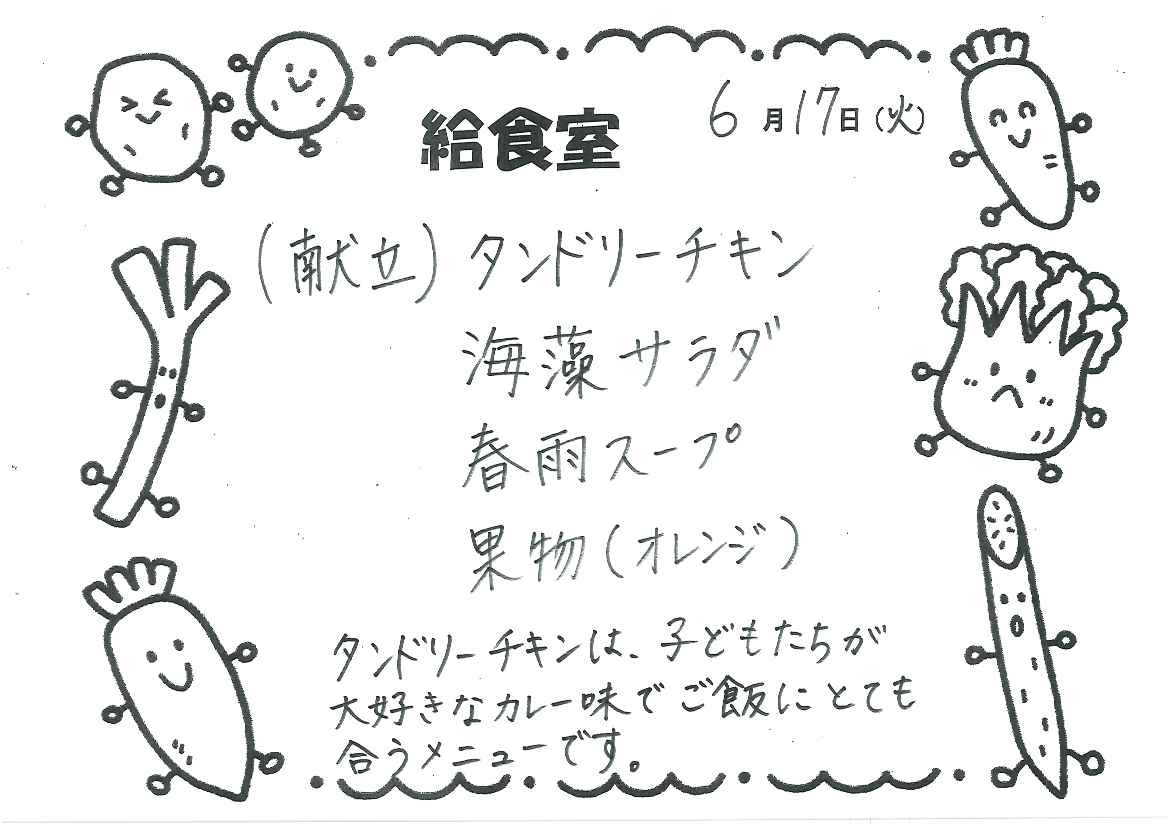 給食室
6月17日(火)
(献立)タンドリーチキン
海藻サラダ
春雨スープ
果物(オレンジ)
タンドリーチキンは、子どもたちが
大好きなカレー味でご飯にとても
合うメニューです。